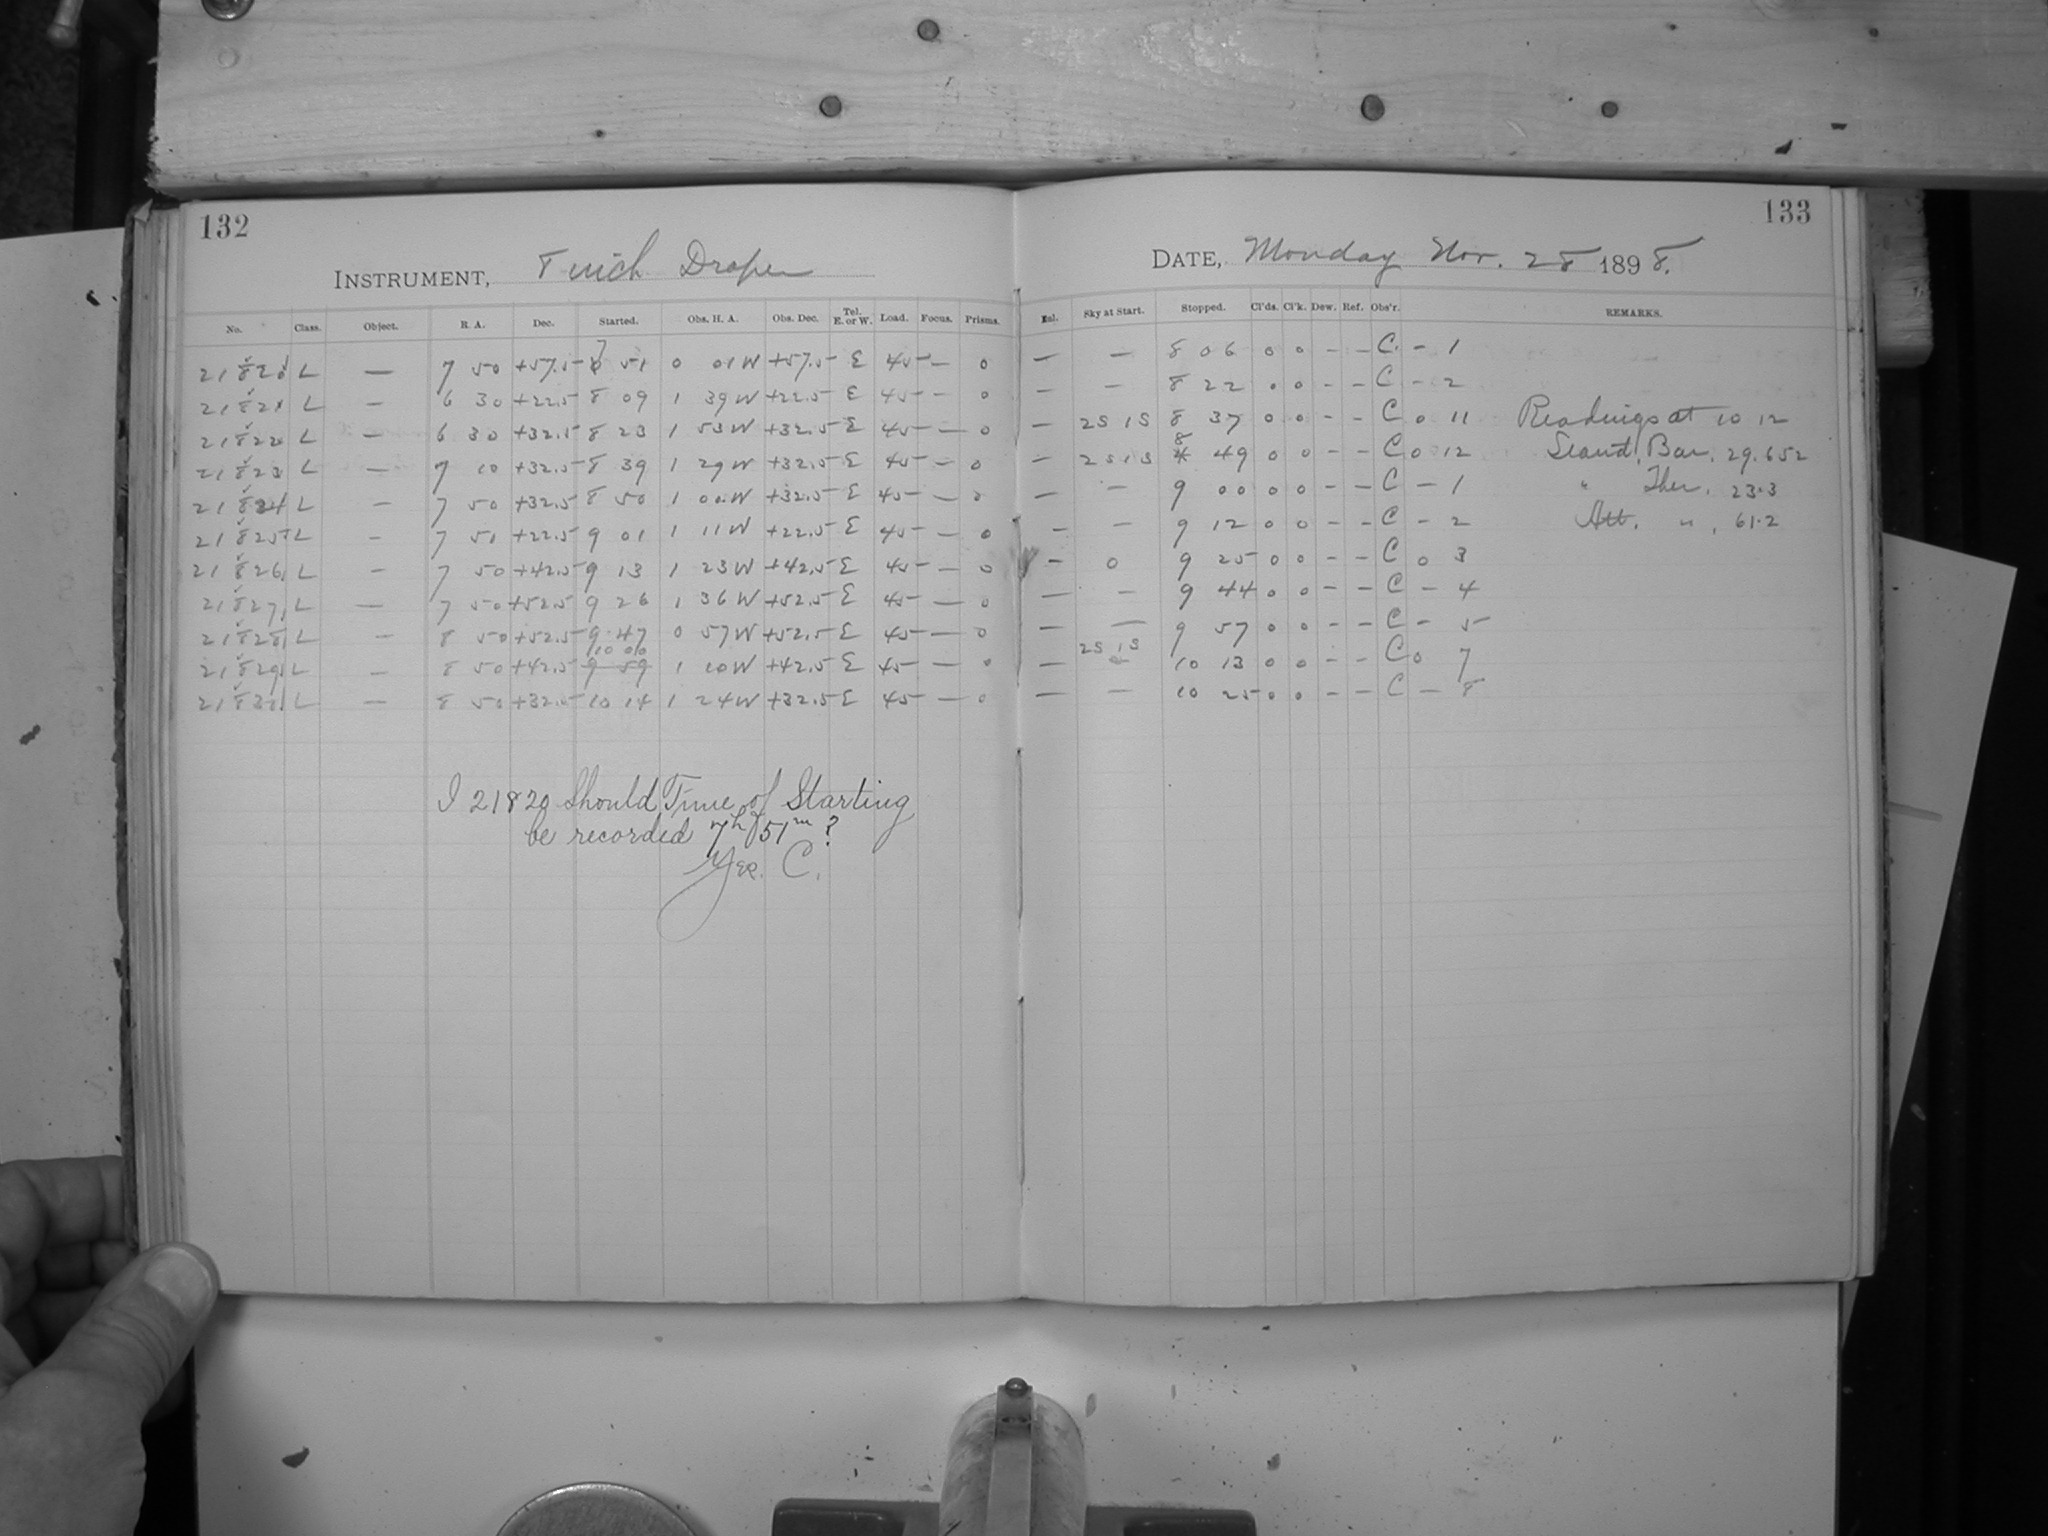 132
INSTRUMENT, 8 inch Draper
No. Class. Object. R. A. Dec. Started. Obs. H. A. Obs. Dec. Tel. E. or W. Load. Focus. Prisms.
21820 L — 7 50 +57.5 7 51 0 01 W +57.5 E 45 — 0
21821 L — 6 30 +22.5 8 09 1 39 W +22.5 E 45 — 0
21822 L — 6 30 +32.5 8 23 1 53 W +32.5 E 45 — 0
21823 L — 7 10 +32.5 8 39 1 29 W +32.5 E 45 — 0
21824 L — 7 50 +32.5 8 50 1 00 W +32.5 E 45 — 0
21825 L — 7 51 +22.5 9 01 1 11 W +22.5 E 45 — 0
21826 L — 7 50 +42.5 9 13 1 23 W +42.5 E 45 — 0
21827 L — 7 50 +52.5 9 26 1 36 W +52.5 E 45 — 0
21828 L — 8 50 +52.5 9 47 0 57 W +52.5 E 45 — 0
10 00
21829 L — 8 50 +42.5 9 59 1 10 W +42.5 E 45 — 0
21830 L — 8 50 +32.5 10 14 1 24 W +32.5 E 45 — 0
I 21820 Should Time of Starting
be recorded 7h 51m ?
Yes. C.
133
DATE, Monday Nov. 28 1898.
Sky at Start. Stopped. Cl'ds. Cl'k. Dew. Ref. Obs'r. REMARKS.
— — 8 06 0 0 – – C. – 1
— — 8 22 0 0 – – C – 2
— 2S 1S 8 37 0 0 – – C 0 11 Readings at 10 12
— 2S 1S 8 49 0 0 – – C 0 12 Stand. Bar. 29.652
— — 9 00 0 0 – – C – 1 " Ther. 23.3
— — 9 12 0 0 – – C – 2 Att. " , 61.2
— 0 9 25 0 0 – – C 0 3
— — 9 44 0 0 – – C – 4
— — 9 57 0 0 – – C – 5
— 2S 1S 10 13 0 0 – – C 0 7
— — 10 25 0 0 – – C – 8